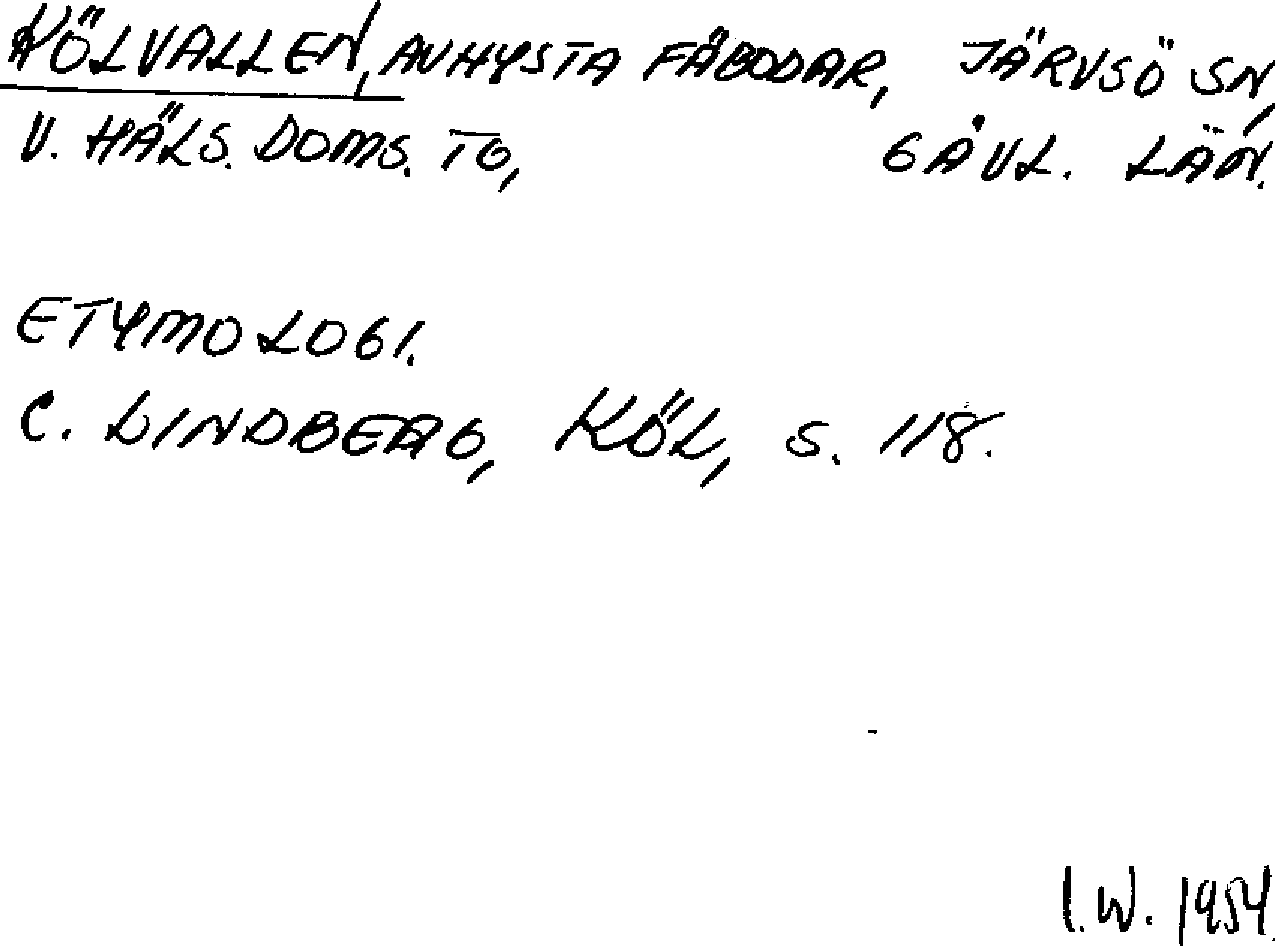 KÖLVALLEN, AVHYSTA FÄBODAR, JÄRVSÖ SN,
V. HÄLS. DOMS. TG, GÄVL. LÄN.
ETYMOLOGI.
C. LINDBERG, KÖL, S. 118.
I.W. 1954.